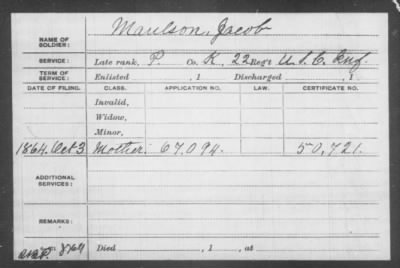 NAME OF SOLDIER: Maulson, Jacob
SERVICE: Late rank, P. Co. K, 22 Reg't U.S.C. Inf.
TERM OF SERVICE: Enlisted , 1 Discharged , 1
DATE OF FILING. CLASS. APPLICATION NO. LAW. CERTIFICATE NO.
Invalid,
Widow,
Minor,
1864. Oct 3 Mother. 67.094. 50,721.
ADDITIONAL SERVICES:
REMARKS:
Died , 1 , at